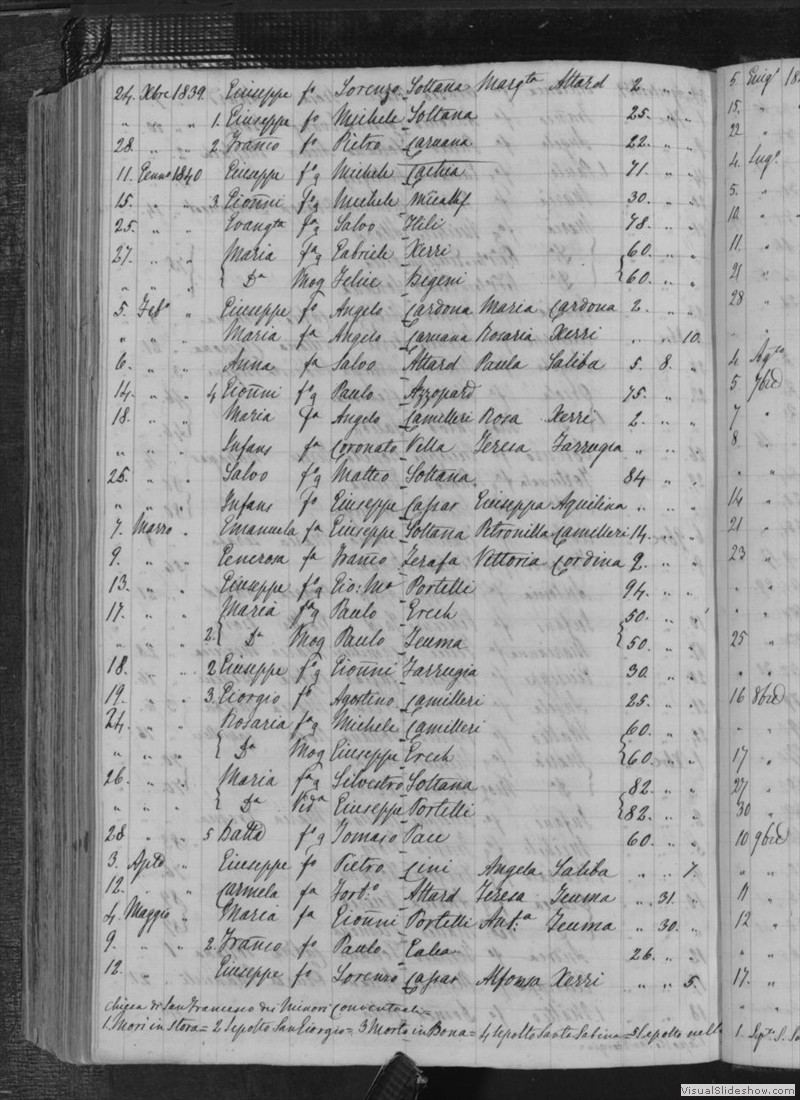 24. Xbre 1839. Giuseppe fo Lorenzo Soltana Margta Attard 2. " "
" " " 1. Giuseppe fo Michele Soltana 25. " "
28. " " 2. Franco fo Pietro Caruana 22. " "
11. Genno 1840 Giuseppe fo q Michele Cachia 71. " "
15. " " 3. Gionni fo q Michele Micallef 30. " "
25. " " Evangta fa q Salvo Hili 78. " "
27. " " Maria fa q Gabriele Xerri 60. " "
" " " Da Mog Felice Bigeni 60. " "
5. Febo " Giuseppe fo Angelo Cardona Maria Cardona 2. " "
" " " Maria fa Angelo Caruana Rosaria Xerri " " 10.
6. " " Anna fa Salvo Attard Paula Saliba 5. 8. "
14. " " 4 Gionni fo q Paulo Azzopard 75. " "
18. " " Maria fa Angelo Camilleri Rosa Xerri 2. " "
" " " Infans fa Coronato Vella Teresa Farrugia " " "
25. " " Salvo fo q Matteo Soltana 84 " "
" " " Infans fo Giuseppe Caspar Giuseppa Aquilina " " "
7. Marzo " Emanuela fa Giuseppe Soltana Petronilla Camilleri 14. " "
9. " " Generosa fa Franco Zerafa Vittoria Cordina 9. " "
13. " " Giuseppe fo q Gio: Ma Portelli 94. " "
17. " " Maria fa q Paulo Grech 50. " "
" " " 2. Da Mog Paulo Zeuma 50. " "
18. " " 2 Giuseppe fo q Gionni Farrugia 30. " "
19. " " 3. Giorgio fo Agostino Camilleri 25. " "
24. " " Rosaria fa q Michele Camilleri 60. " "
" " " Da Mog Giuseppe Grech 60. " "
26. " " Maria fa q Silvestro Soltana 82. " "
" " " Da Vda Giuseppe Portelli 82. " "
28 " " 5 Batta fo q Tomaso Pace 60. " "
3. Aple " Giuseppe fo Pietro Cini Angela Saliba " " 7.
12. " " Carmela fa Ferdo Attard Teresa Zeuma " 31. "
4. Maggio " Maria fa Gionni Portelli Anta Zeuma " 30. "
9. " " 2. Franco fo Paulo Galea 26. " "
12. " " Giuseppe fo Lorenzo Caspar Alfonsa Xerri " " 5.
chiesa di San Francesco dei Minori Conventuali =
1. Mori in Stora = 2 Sepolto San Giorgio = 3 Morto in Bona = 4 Sepolto Santa Sabina = 5 Sepolto nella
5. Giugo 18
15. "
22 "
4. Lugo
5. "
10. "
11. "
21 "
28 "
4 Agto
5 7bre
7 "
8. "
" "
14 "
21 "
23 "
" "
" "
25 "
" "
16 8bre
" "
17 "
27 "
30 "
10 9bre
" "
11 "
12 "
" "
17. "
1.
VisualSlideshow.com